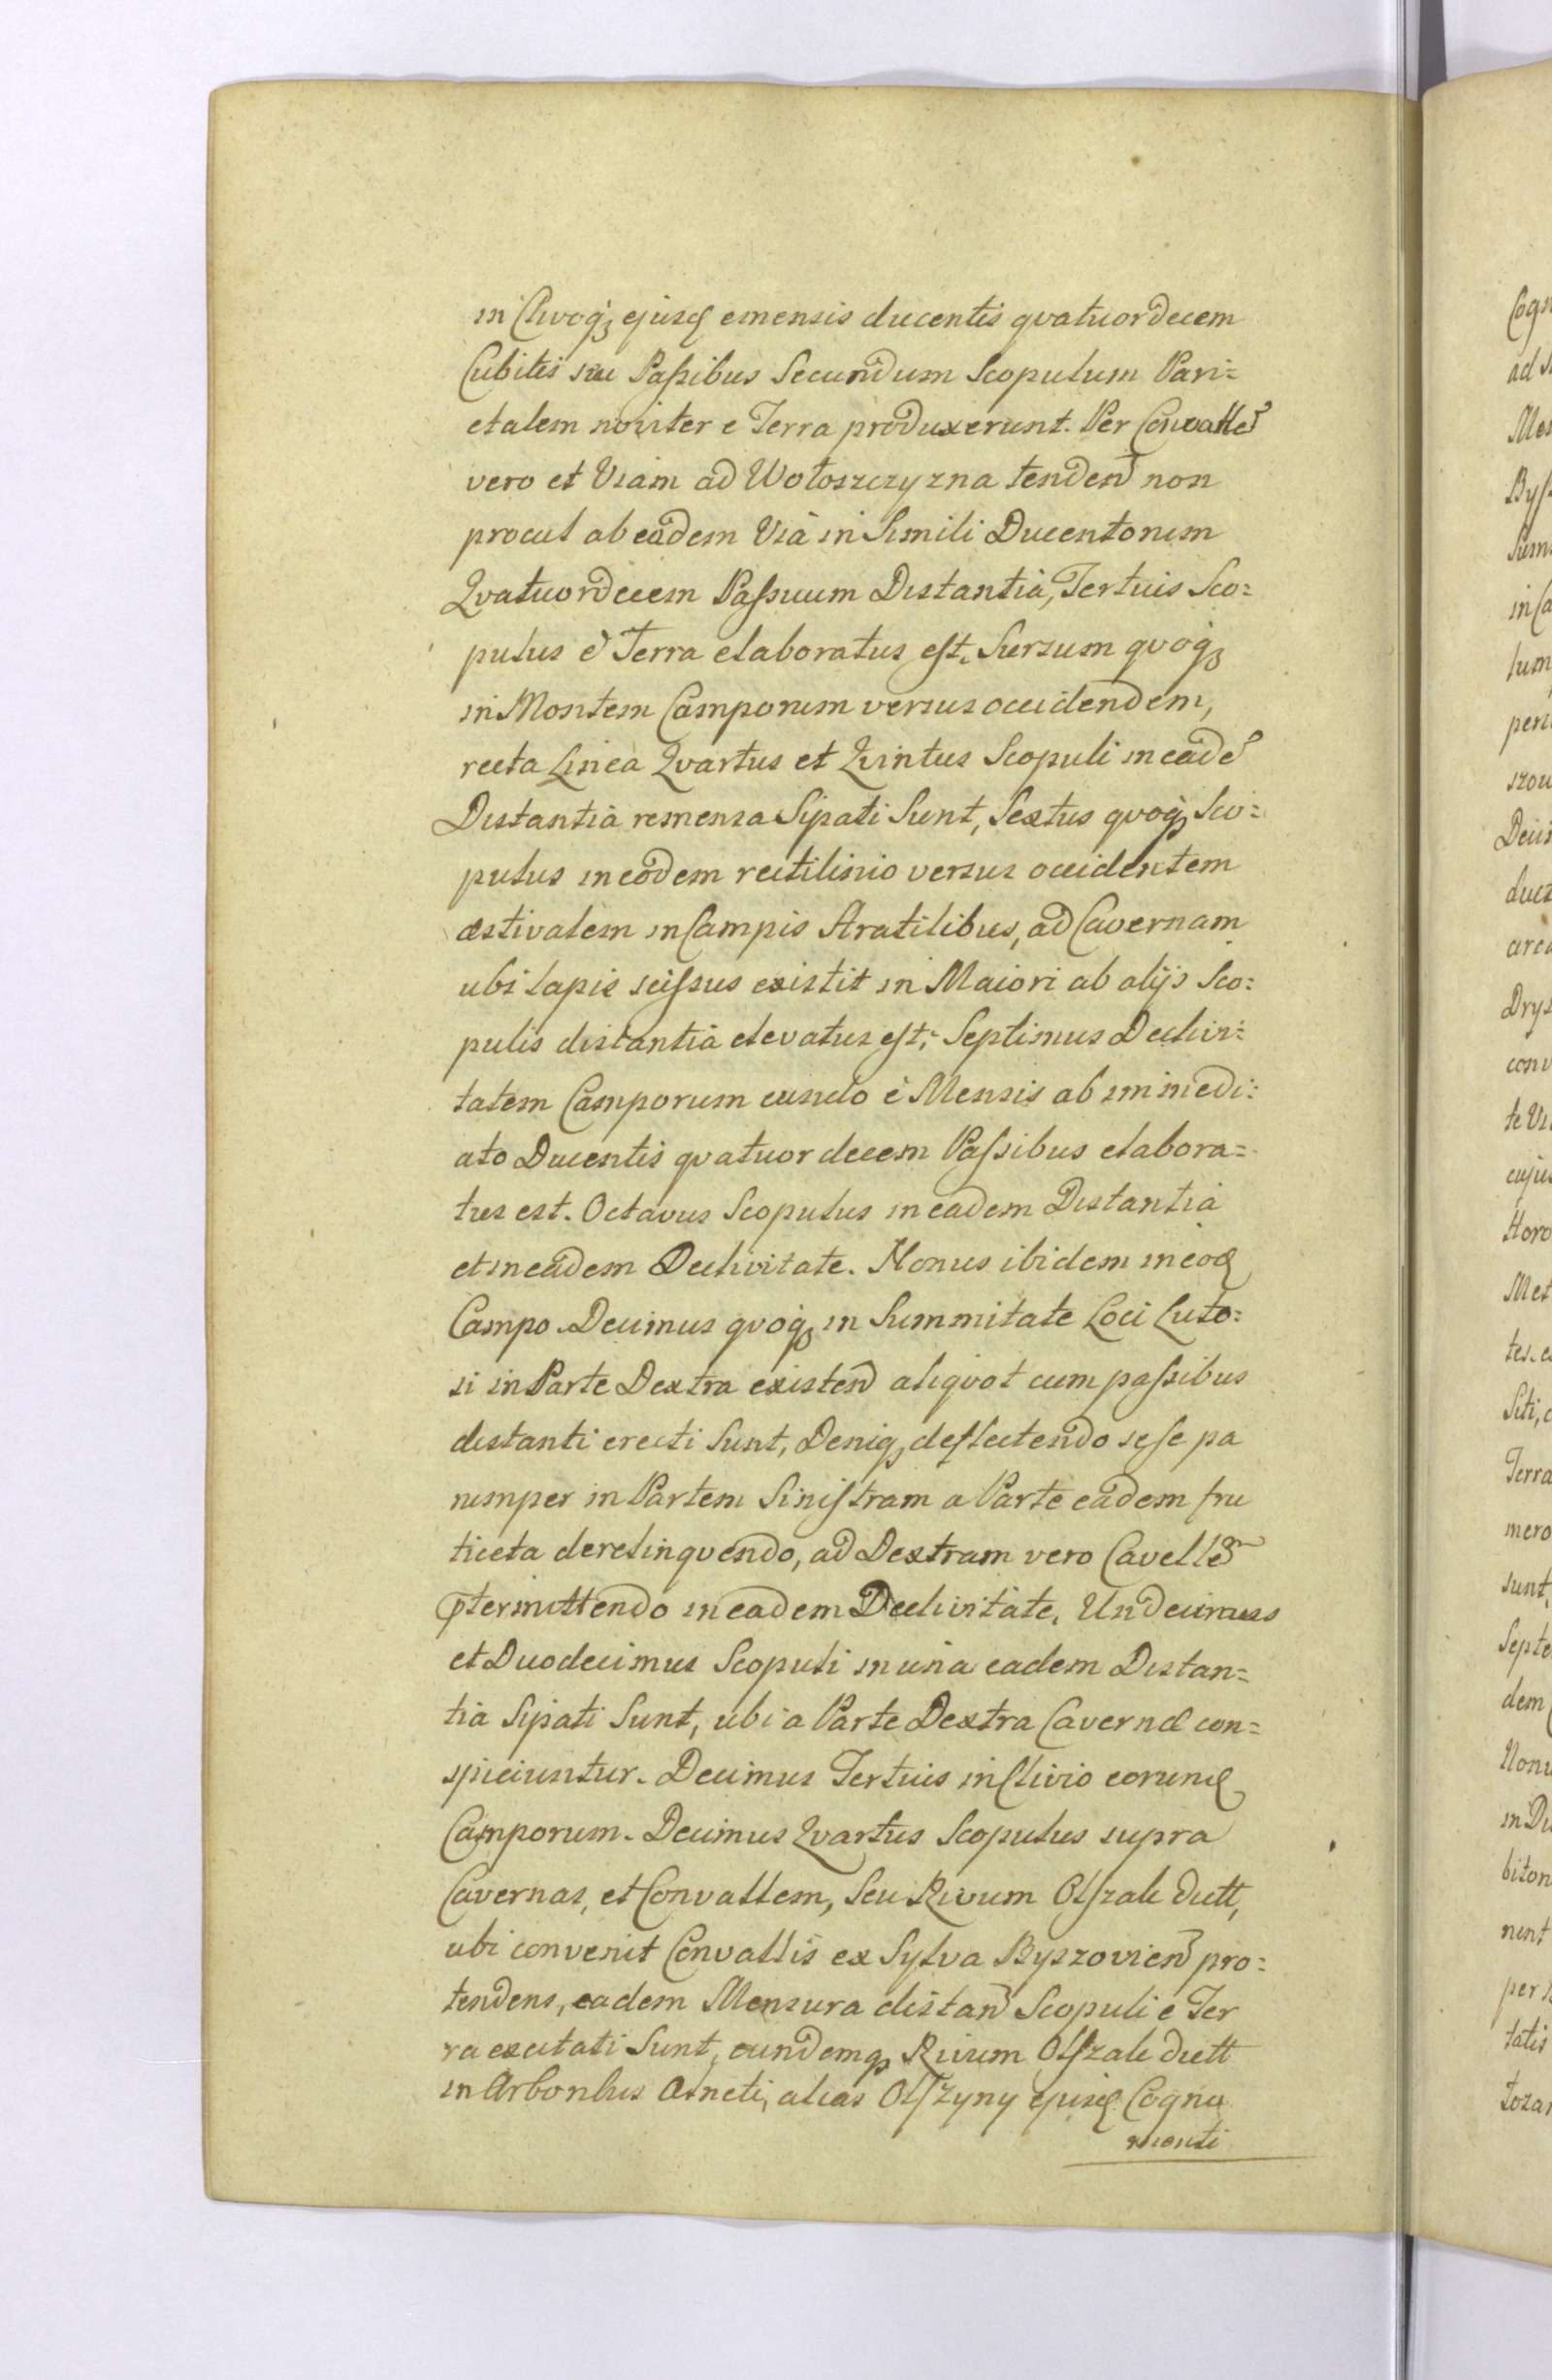 in Clivoq₃ ejusq emensis ducentis qvatuordecem
Cubitis seu Paſsibus Secundum Scopulum Pari=
etalem noviter e Terra produxerunt. Per Convalle
vero et Viam ad Wołoszczyzna tenden non
procul ab eâdem Viâ in Simili Ducentorum
Qvatuordecem Paſsuum Distantiâ, Tertius Sco=
pulus è Terra elaboratus eſt. Sursum qvoq₃
in Montem Camporum versus occidendem,
recta Linea Qvartus et Qvintus Scopuli in eâdē
Distantiâ remensa Sipati Sunt, Sextus qvoq₃ Sco=
pulus in eôdem rectilinio versus occidentem
æstivalem in Campis Aratilibus, ad Cavernam
ubi Lapis sciſsus existit in Maiori ab alijs Sco=
pulis distantiâ elevatus eſt, Septimus Declivi=
tatem Camporum eundo è Mensis ab immedi=
ato Ducentis qvatuor decem Paſsibus elabora=
tus est. Octavus Scopulus in eadem Distantiâ
et in eâdem Declivitate. Nonus ibidem in eoq
Campo. Decimus qvoq₃ in Summitate Loci Luto=
si in Parte Dextra existen aliqvot cum paſsibus
distanti erecti Sunt, Deniq₃ deflectendo seſe pa
rumper in Partem Siniſtram a Parte eâdem fru
ticeta derelinqvendo, ad Dextram vero Cavellē
ptermittendo in eadem Declivitate, Undecimus
et Duodecimus Scopuli in unâ eadem Distan=
tiâ Sipati Sunt, ubi a Parte Dextra Cavernæ con=
spiciuntur. Decimus Tertius in Clivio eorunq
Camporum. Decimus Qvartus Scopulus supra
Cavernas, et Convallem, Seu Rivum Olſzale dictt,
ubi convenit Convallis ex Sylva Byszovien pro=
tendens, eadem Mensura distan Scopuli e Ter
ra excitati Sunt, eundemq₃ Rivum Olſzale dictt
in Arboribus Alneti, alias Olſzyny ejusq Cogno
menti
Cogn
ad
Mon
Byſ
Sum
in Ca
lum
peri
szow
Deci
duc
Drys
conv
te Vi
cuju
Horo
Met
Siti,
Terra
mero
sunt,
Septe
dem
Nonu
in Di
biton
nent
per
tatis